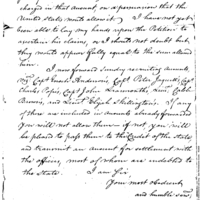 charged in that amount, on a presumption that the
United States must allow it. I have not yet
been able to lay my hands upon the Petition to
ascertain his claims, or I should not doubt but
they would appear fully equal to the sum allowed
him.
I now forward sundry recruiting accounts,
viz Capt Enoch Anderson, Capt Peter Jaquett, Capt
Charles Pope, Capt John Learmonth, Lieut Caleb
Brown, and Lieut Elijah Skillington. If any
of these are included in accounts already forwarded
you will not allow them; if not you will
be pleased to pass them to the Credit of the State, and
transmit an account for settlement with
the officers, most of whom are indebted to
the State. I am Sir,
Your most Obedient
and humble serv